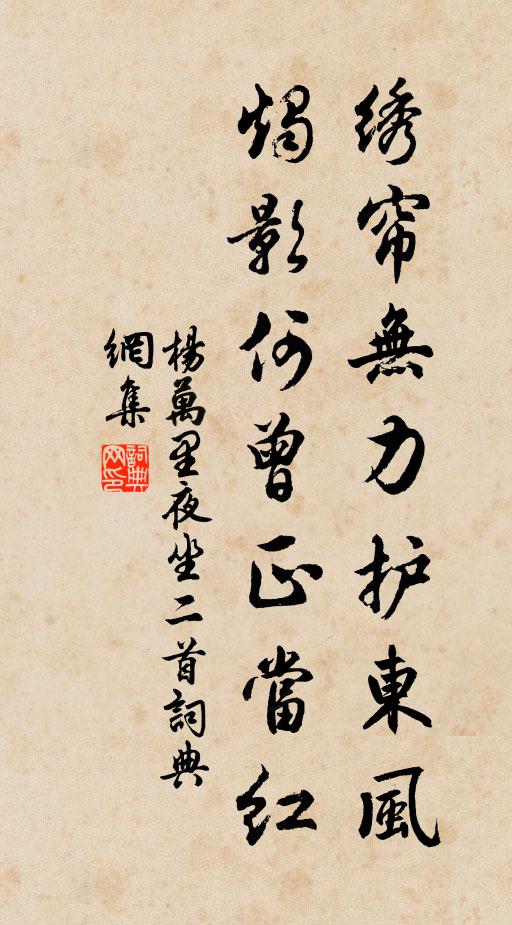 绣帘無力护東風
燭影何曾正當红
楊萬里夜坐二首詞典
網集
詞典
网印